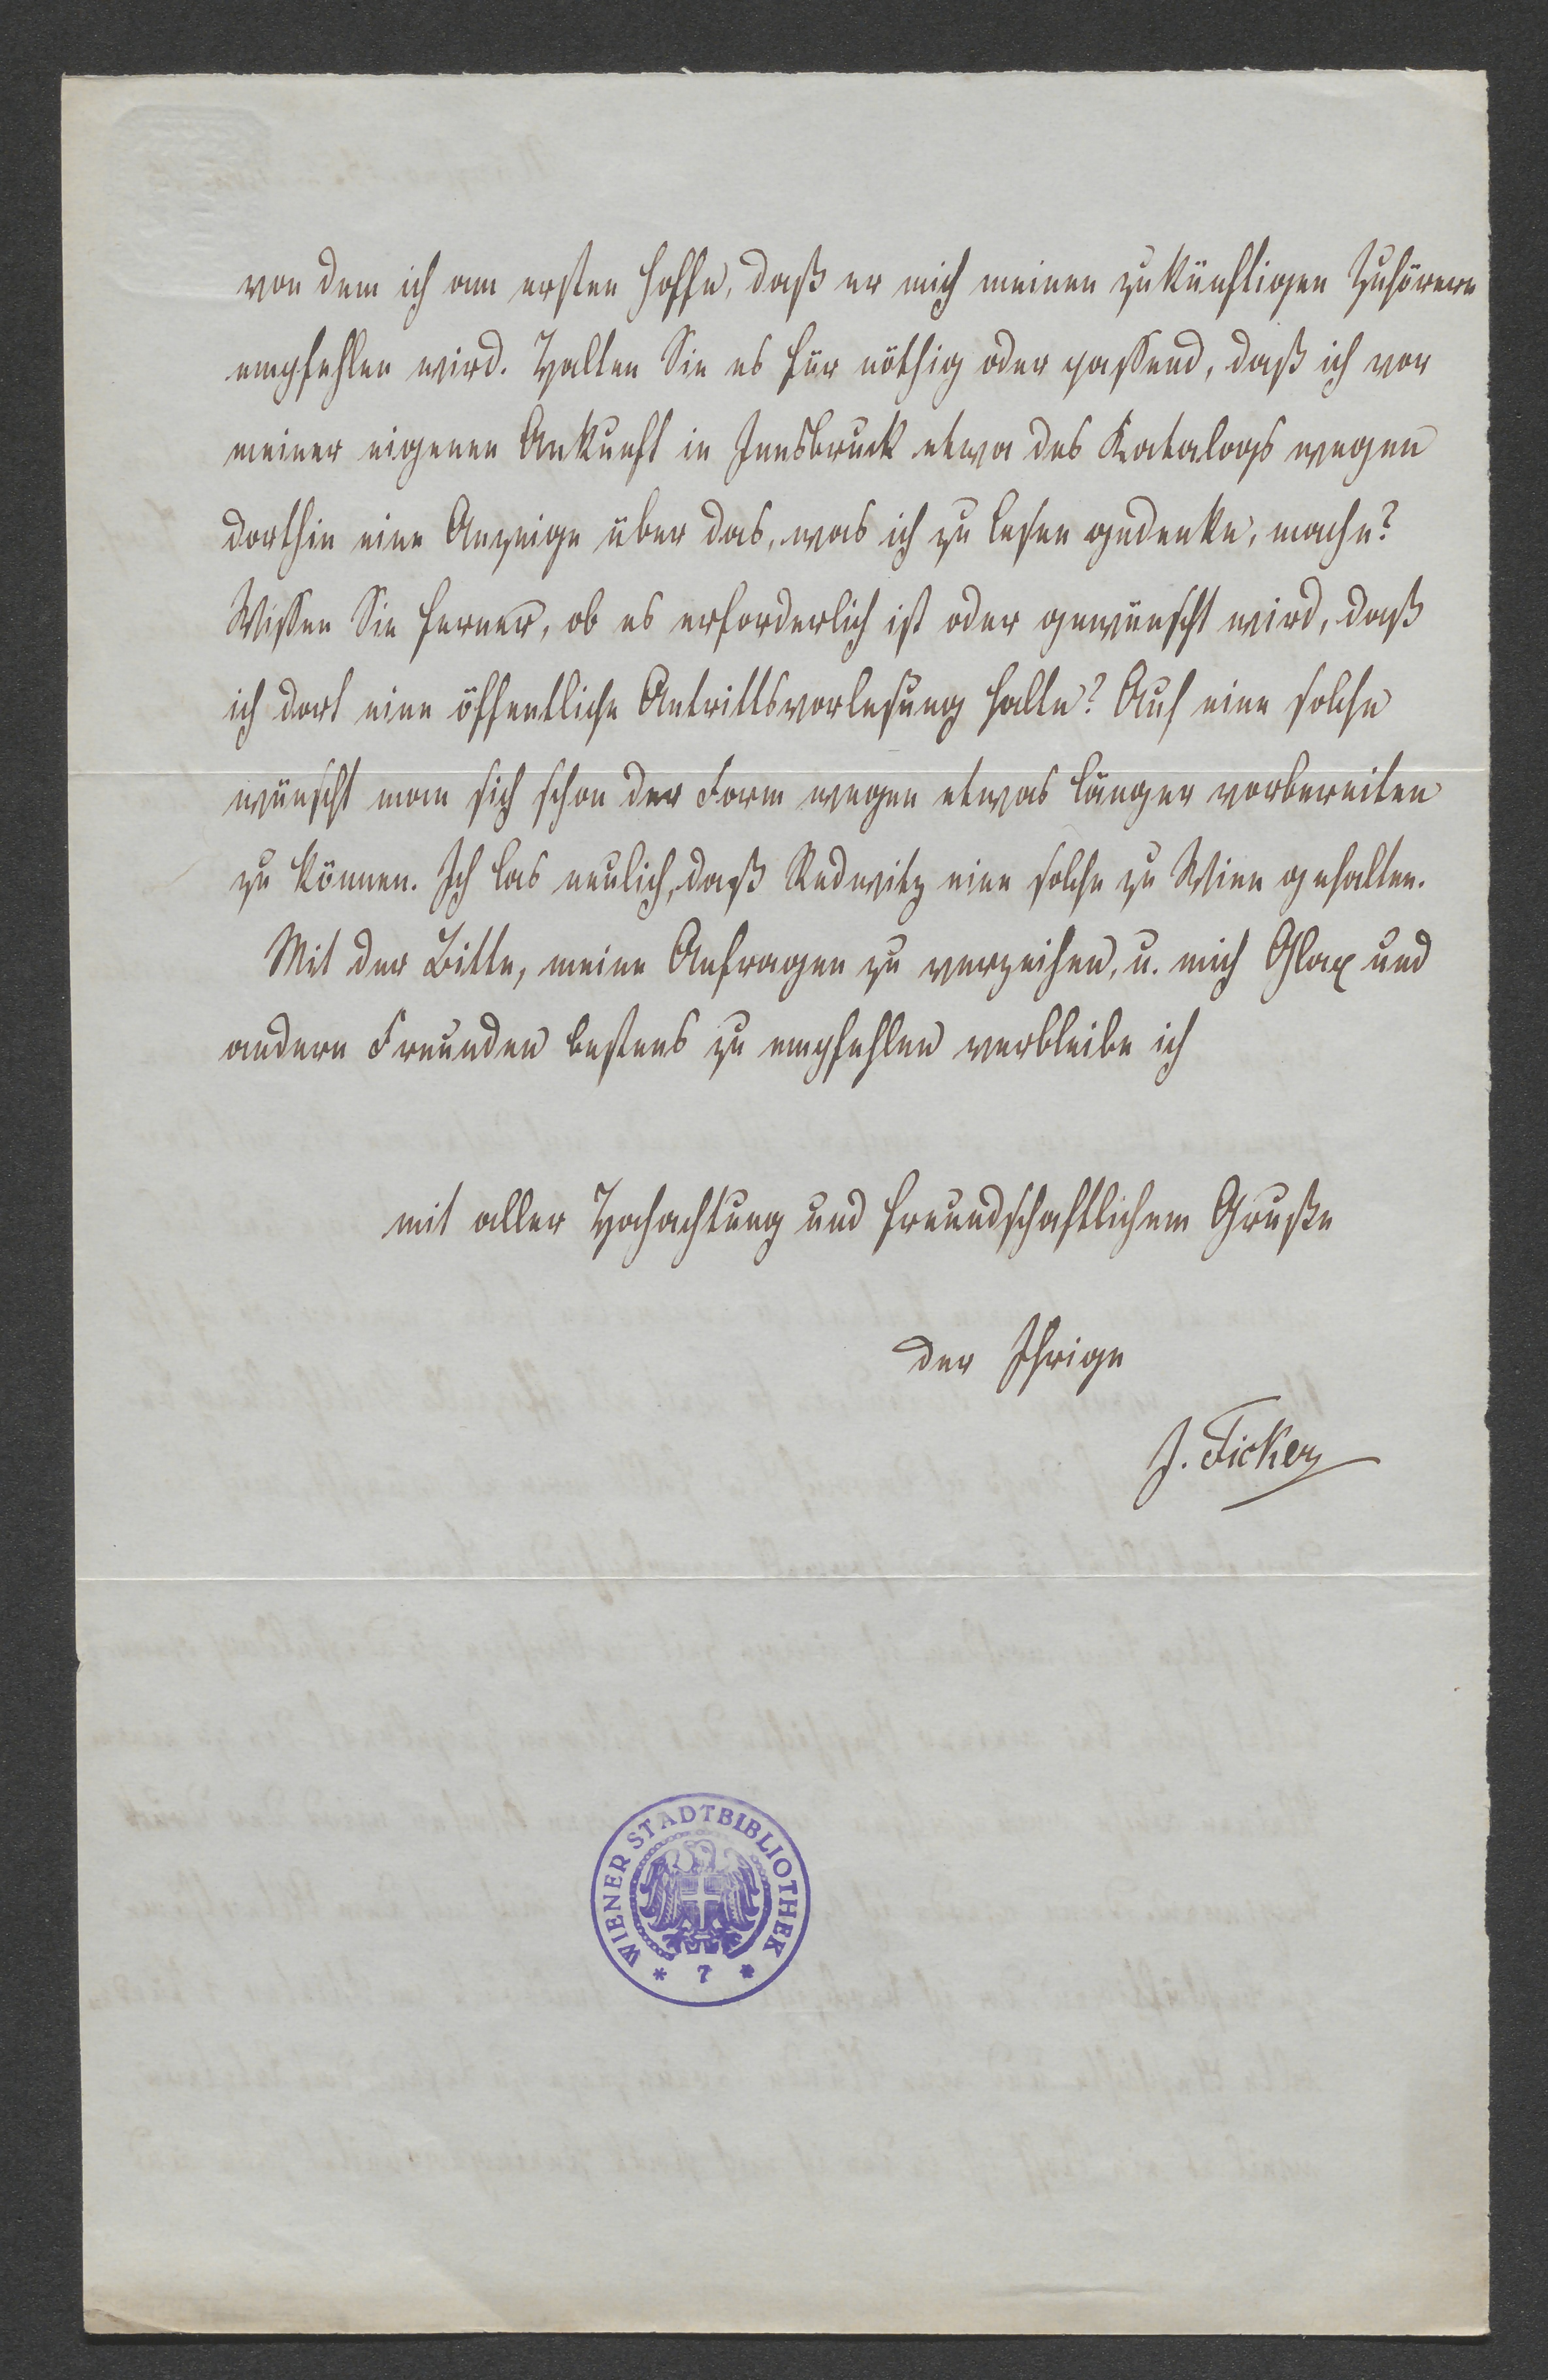 von dem ich am ersten hoffe, daß er mich meinen zukünftigen Zuhörern
empfehlen wird. Halten Sie es für nöthig oder passend, daß ich vor
meiner eigenen Ankunft in Innsbruck etwa des Katalogs wegen
dorthin eine Anzeige über das, was ich zu lesen gedenke, mache?
Wissen Sie ferner, ob es erforderlich ist oder gewünscht wird, daß
ich dort eine öffentliche Antrittsvorlesung halte? Auf eine solche
wünscht man sich schon der Form wegen etwas länger vorbereiten
zu können. Ich las neulich, daß Redwitz eine solche zu Wien gehalten.
Mit der Bitte, meine Anfragen zu verzeihen, u. mich Glax und
andern Freunden bestens zu empfehlen verbleibe ich
mit aller Hochachtung und freundschaftlichem Gruße
der Ihrige
J. Ficker
WIENER STADTBIBLIOTHEK
* 7 *